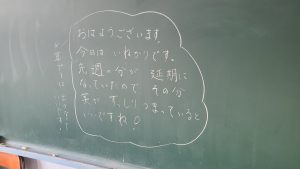 おはようございます。
今日は いねかりです。
先週の分が 延期に
なっていたので その分
実が すっしりつまっていると
いいですね！